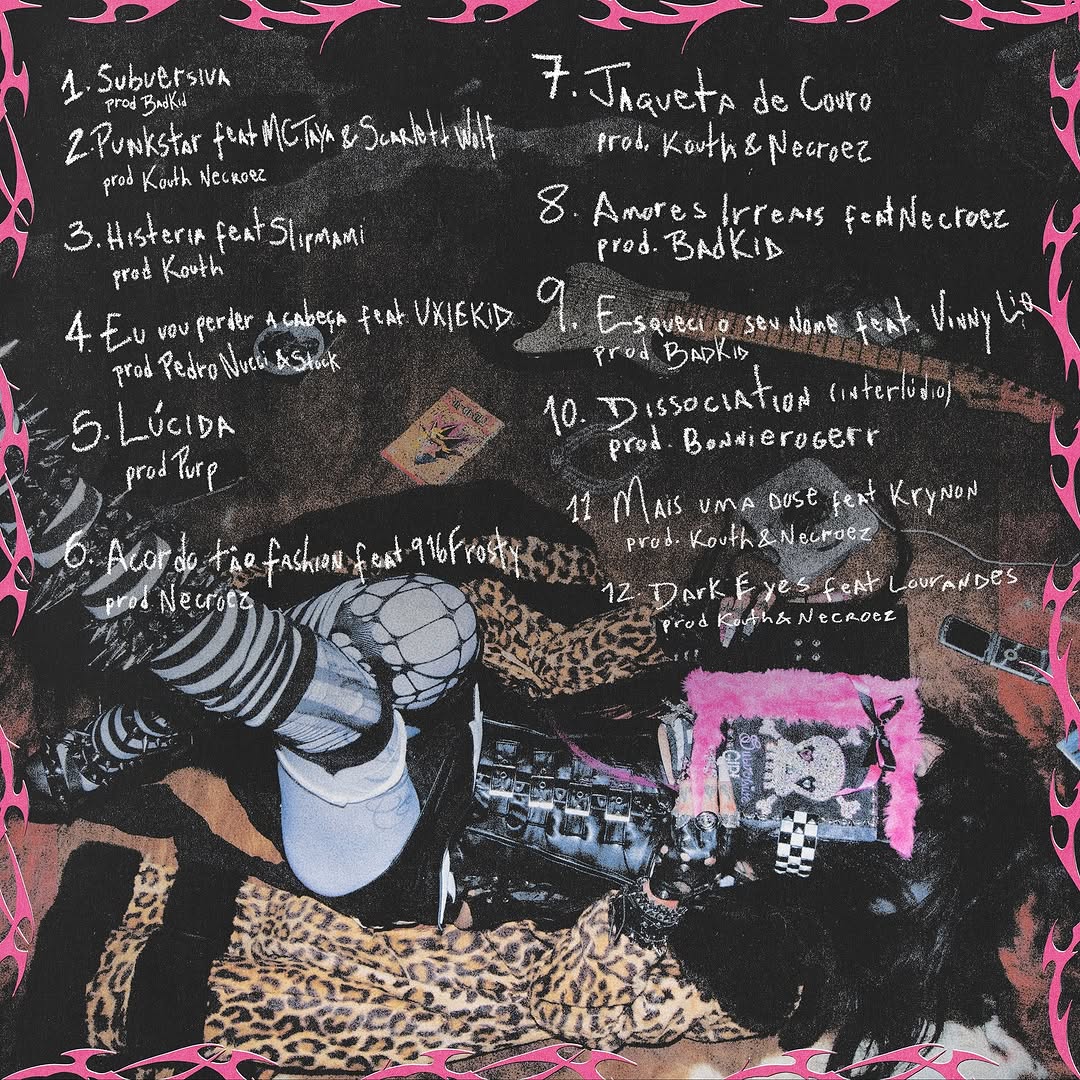 1. Subversiva
prod BadKid
2. Punkstar feat MC Taya & Scarlett Wolf
prod Kouth Necroez
3. Histeria feat Slipmami
prod Kouth
4. Eu vou perder a cabeça feat UXIEKID
prod Pedro Nucci & Stock
5. Lúcida
prod Purp
6. Acordo tão fashion feat 916Frosty
prod Necroez
7. Jaqueta de Couro
prod. Kouth & Necroez
8. Amores Irreais feat Necroez
prod. BadKid
9. Esqueci o seu nome feat. Vinny
prod BadKid
10. Dissociation (interlúdio)
prod. Bonnierogerr
11 Mais uma dose feat Krynon
prod. Kouth & Necroez
12 Dark Eyes feat Lourandes
prod Kouth & Necroez